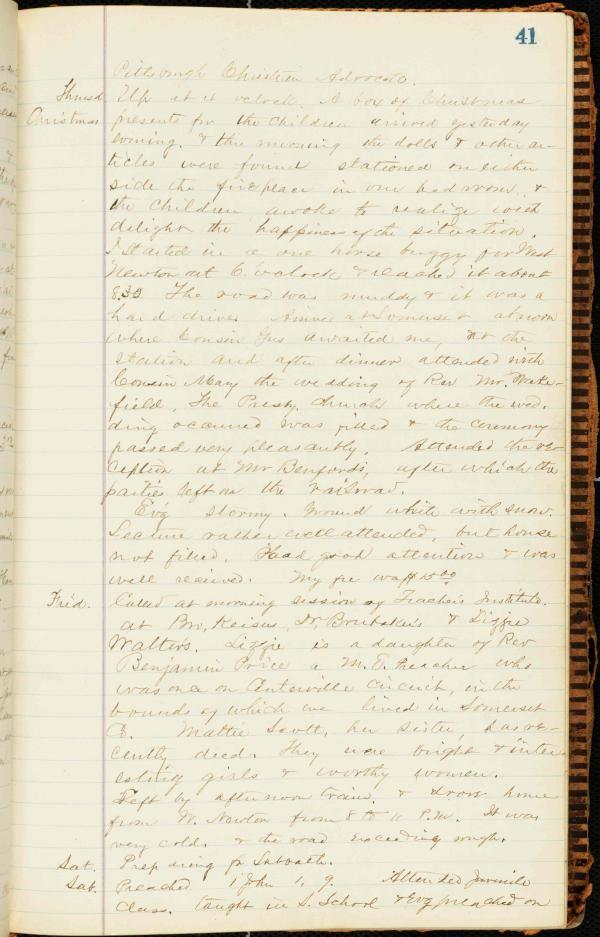 41
Pittsburgh Christian Advocate.
Thursd. Up at 4 oclock. A box of Christmas
Cristmas presents for the children arrived yesterday
evening. & this morning the dolls & other ar-
ticles were found stationed on either
side the fireplace in our bedroom, &
the children awoke to realize with
delight the happiness of the situation.
I started in a one horse buggy for West
Newton at 6. oclock & reached it about
8.30 The road was muddy & it was a
hard drive. Arrive at Somerset at noon
where Cousin Gus awaited me, at the
station and after dinner attended with
Cousin Mary the wedding of Rev Mr. Wake-
field, The Presby. Church where the wed-
ding occurred was filled & the ceremony
passed very pleasantly. Attended the re-
ception at Mr Benford's, after which the
parties left on the railroad.
Ev'g stormy. Ground white with snow.
Lecture rather well attended, but house
not filled. Had good attention & was
well received. My fee was $15.00
Frid. Called at morning session of Teacher's Institute.
at Bro. Keisers, Dr. Brubakers & Lizzie
Walter's. Lizzie is a daughter of Rev
Benjamin Price a M.E. Preacher who
was once on Centerville Circuit, in the
bounds of which we lived in Somerset
Co. Mattie Scott, her sister, has re-
cently died. They were bright & inter-
esting girls & worthy women.
Left by afternoon train. & drove home
from W. Newton from 8 to 11 P.M. It was
very cold. & the road exceeding rough.
Sat. Preparing for Sabbath.
Sab. Preached 1 John 1, 9. Attended Juvenile
Class. taught in S. School & Ev'g preached on